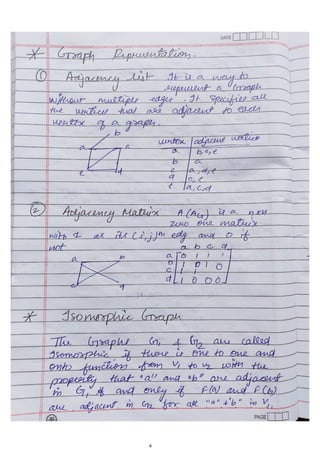 DATE
* Graph Representation.
① Adjacency list It is a way to
represent a Graph
without multiple edges. It specifies all
the vertices that are adjacent to each
vertex of a graph.
b
a c
e d
vertex adjacent vertices
a b, c, e
b a
c a, d, e
d c, e
e a, c, d
② Adjacency Matrix A (AG) is a nxn
zero one matrix
with 1 as its (i,j)th edg and 0 if
not
a b
c d
a b c d
a 0 1 1 1
b 1 0 1 0
c 1 1 0
d 1 0 0 0
* Isomorphic Graph
The Graphs G1 & G2 are called
Isomorphic if there is one to one and
onto function from V1 to V2 with the
property that "a" and "b" are adjacent
in G1 if and only if f(a) and f(b)
are adjacent in G2 for all "a" & "b" in V1
PAGE
4